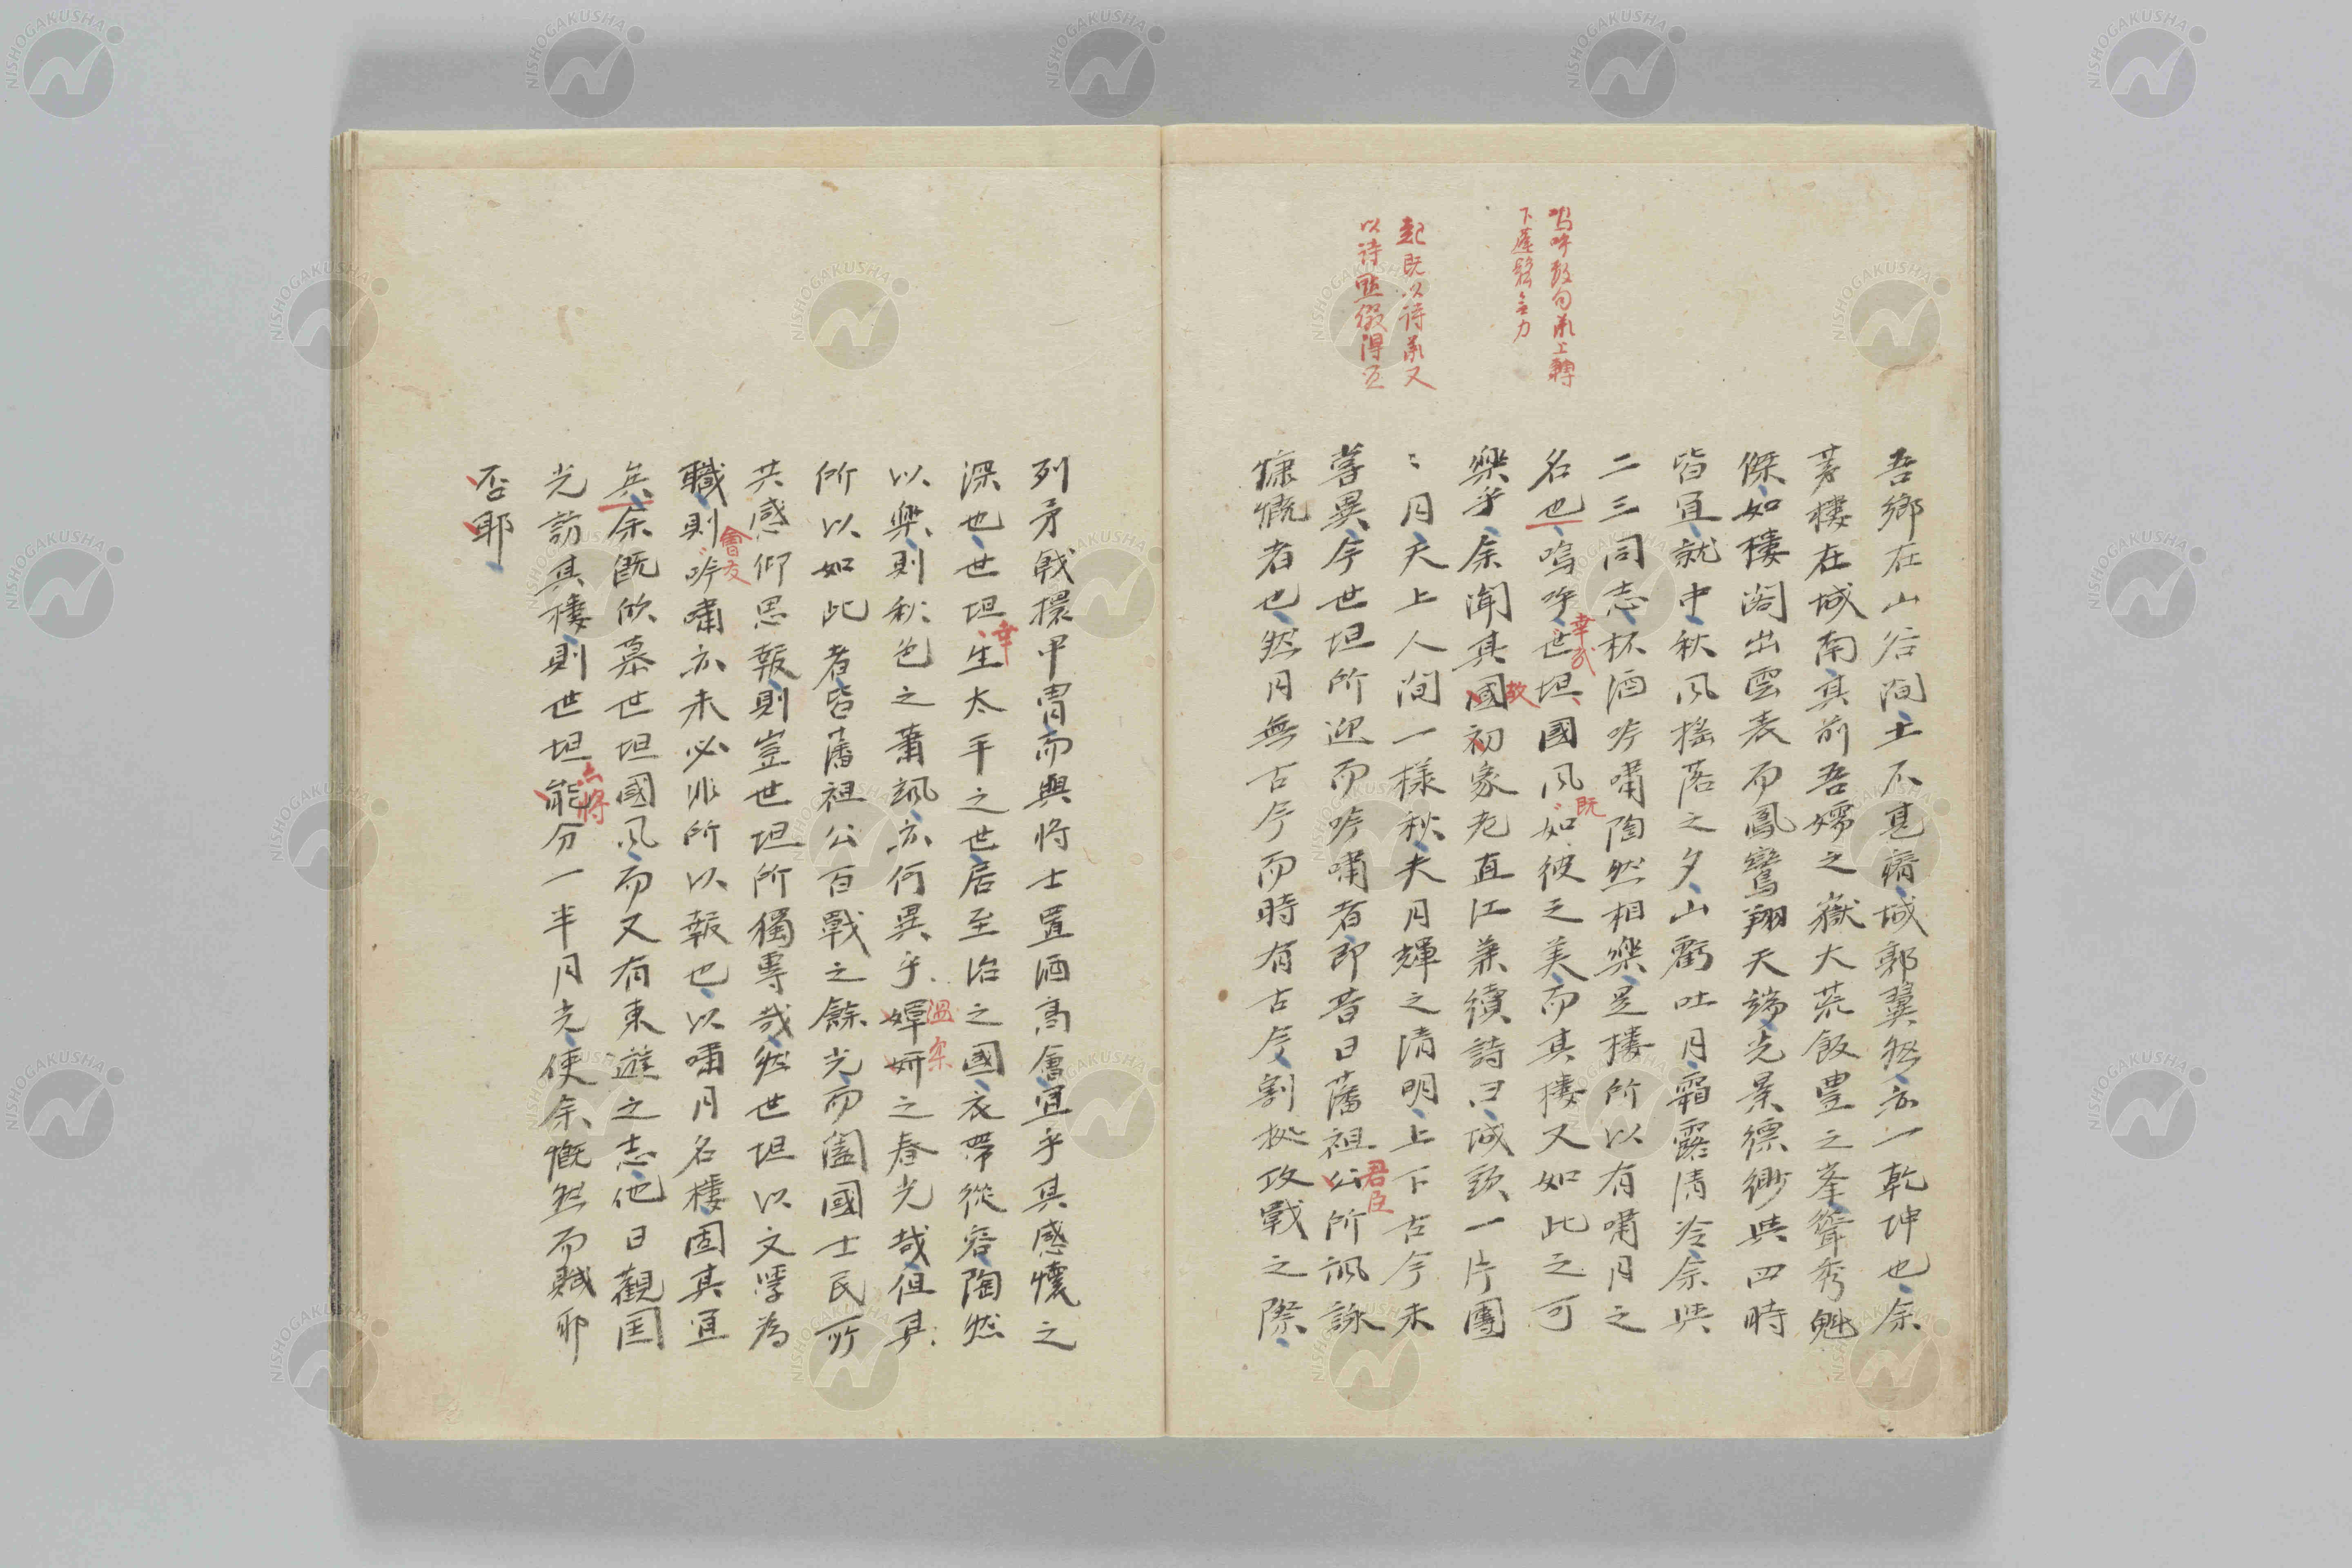 嗚呼数句承上轉
下蓋軽無力
起既以詩承又
以詩照綴得一
吾鄉在山谷間土不甚瘠城郭翼然亦一乾坤也余
茅樓在城南其前吾嬬之嶽大荒飯豊之峯聳秀魁
傑如樓閣出雲表而鳳鸞翔天端光景縹緲與四時
皆宜就中秋風搖落之夕山霸吐月霜露清冷余與
二三同志杯酒吟嘯陶然相樂是樓所以有嘯月之
名也嗚呼世坦國風如彼之美而其樓又如此之可
幸哉
既
樂乎余聞其國初家老直江兼續詩曰城頭一片團
故
〻月天上人間一樣秋夫月輝之清明上下古今未
嘗異今世坦所迎而吟嘯者即昔日藩祖公所諷詠
君臣
慷慨者也然月無古今而時有古今割據攻戰之際
列矛戟擐甲冑而與將士置酒高會宜乎其感懷之
深也世坦生太平之世居至治之國衣帶從容陶然
幸
以樂則秋色之蕭颯亦何異乎嬋妍之春光哉但其
溫柔
所以如此者皆藩祖公百戰之餘光而闔國士民所
共感仰思報則豈世坦所獨專哉然世坦以文學為
職則吟嘯亦未必非所以報也以嘯月名樓固其宜
會友
矣余既欣慕世坦國風而又有東遊之志他日觀国
光訪其樓則世坦能分一半月光使余慨然而賦耶
亦將
否耶